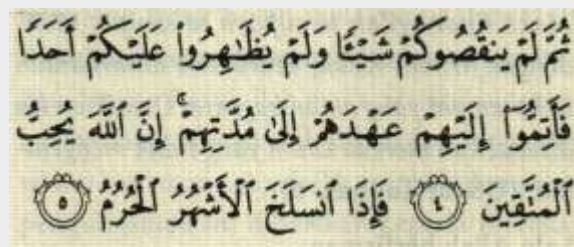 ثُمَّ لَمْ يَنقُصُوكُمْ شَيْـًٔا وَلَمْ يُظَٰهِرُوا۟ عَلَيْكُمْ أَحَدًا
فَأَتِمُّوٓا۟ إِلَيْهِمْ عَهْدَهُمْ إِلَىٰ مُدَّتِهِمْ ۚ إِنَّ ٱللَّهَ يُحِبُّ
ٱلْمُتَّقِينَ ٤ فَإِذَا ٱنسَلَخَ ٱلْأَشْهُرُ ٱلْحُرُمُ ٥